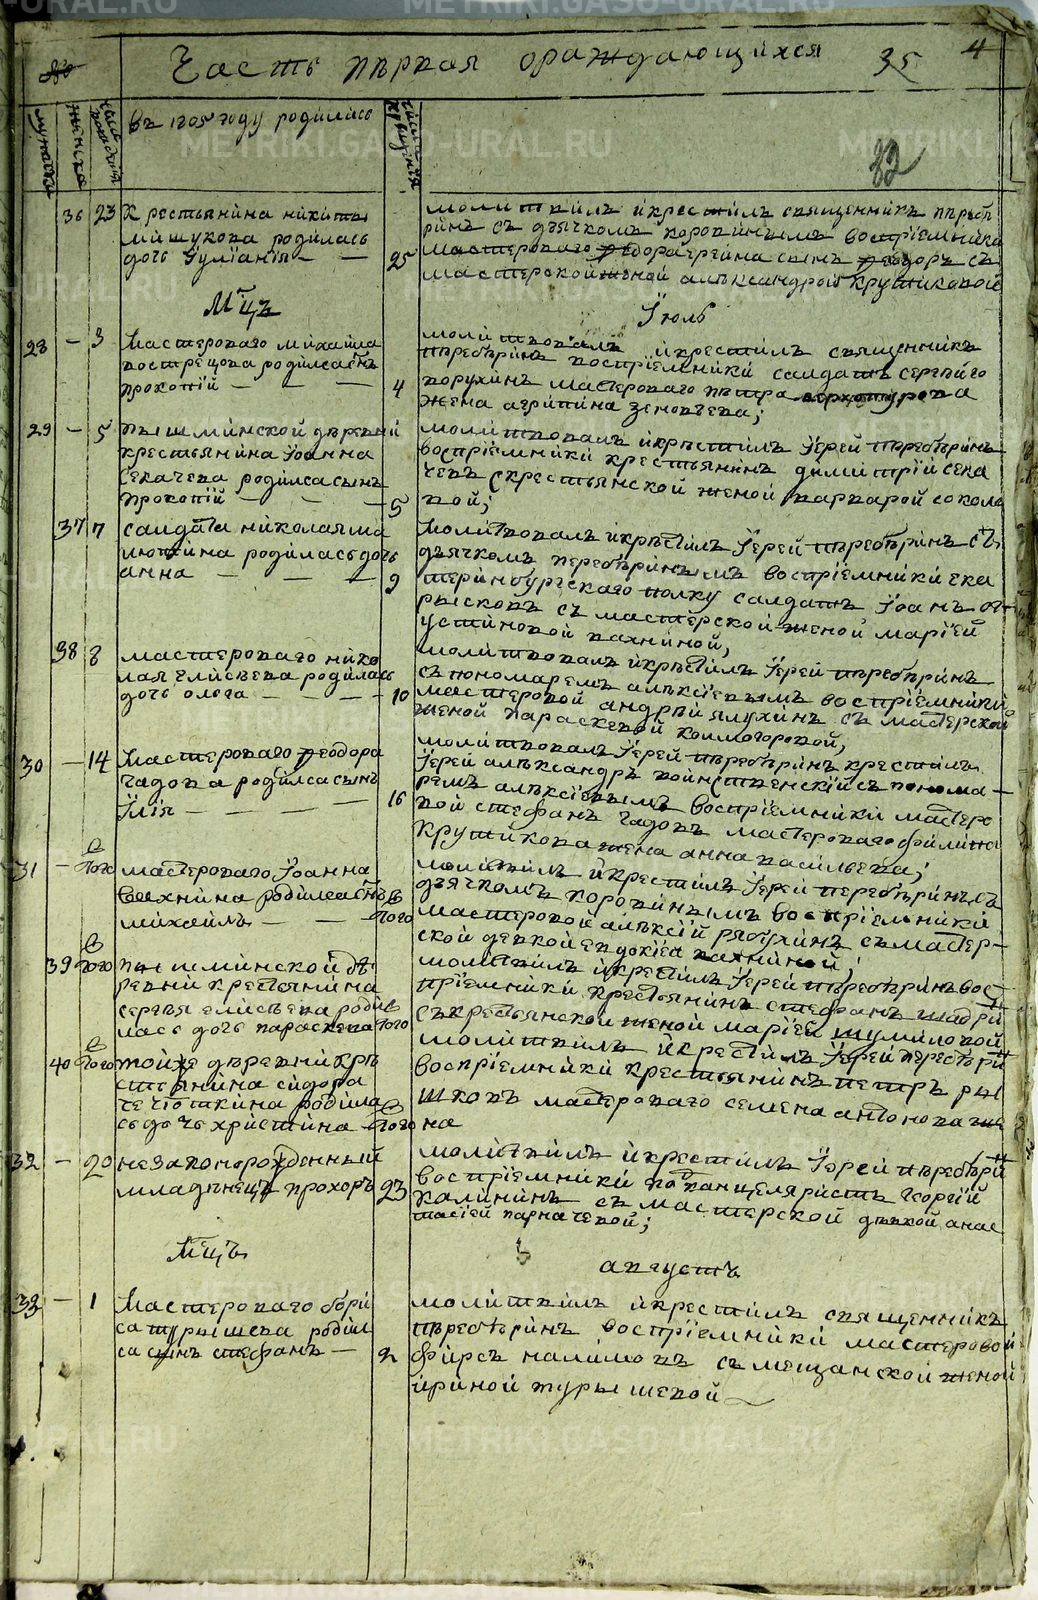 № Часть пѣрвая ораждающихся 35 4
мужеска
женска
числа рожденія
въ 1805 году родились
числа крещенія
82
36 23 Крестьянина никиты
мишукова родилась
дочь Іуліанія
25
молитвилъ икрестилъ священникъ пѣреберинъ
съ дьячкомъ коровинымъ воспріемники
мастероваго ѳеодора сынъ ѳеодоръ съ
мастерской женой алѣксандрой крутиковой
Мцъ Іюль
28 — 3 Мастероваго михаила
вострецова родилса сынъ
прокопій
4
молитвовалъ икрестилъ священникъ
пѣреберинъ воспріемники салдатъ сергѣй
ворухинъ мастероваго пѣтра
жена агрипина зеновьева;
29 — 5 пышминской дѣревни
крестьянина Іоанна
секачева родилса сынъ
прокопій
5
молитвовалъ икрѣстилъ Іерей пѣреберинъ
воспріемники крестьянинъ димитрій сека
чевъ скрестьянской женой варварой соколо
вой;
37 7 салдата николая ма
лютина родилась дочь
анна
9
молитвовалъ икрѣстилъ Іерей пѣреберинъ съ
дьячкомъ переберинымъ воспріемники ека
терінбургскаго полку салдатъ Іоанъ
съ мастерской женой маріей
устиновой вахниной,
38 8 мастероваго нико
лая елисѣева родилась
дочь олга
10
молитвовалъ икрѣстилъ Іерей пѣреберинъ
съ пономаремъ алѣксіевымъ воспріемники
мастеровой андрѣй ялухинъ съ мастерской
женой параскевой колмогоровой,
30 — 14 Мастероваго ѳеодора
гадова родилса сынъ
Илія
16
молитвовалъ Іерей пѣреберинъ крестилъ
Іерей алѣксандръ воинственскій съ понома
ремъ алѣксіевымъ воспріемники мастеро
вой стефанъ гадовъ мастероваго филипа
крутикова жена анна васильева;
31 — того мастероваго Іоанна
вахнина родилса сынъ
михаилъ
того
молитвилъ икрестилъ Іерей переберинъ съ
дьячкомъ коровинымъ воспріемники
мастеровой алѣксій рябухинъ съ мастер
ской девкой евдокіей вахниной;
39 того пышминской дѣ
ревни крестьянина
сергѣя елисѣева роди
лась дочь параскева
того
молитвилъ икрестилъ Іерей пѣреберинъ вос
пріемники крестьянинъ стефанъ
съ крестьянской женой маріей шумиловой
40 того тойже дѣревни крѣ
стьянина сидора
течоткина родила
сь дочь христина
того
молитвилъ икрестилъ Іерей переберинъ
воспріемники крестьянинъ петръ ры
шковъ мастероваго семена антонова же
на
32 — 20 незаконорожденный
младѣнецъ прохоръ
23
молитвилъ икрестилъ Іерей пѣреберинъ
воспріемники подканцеляристъ георгій
калининъ съ мастерской дѣвкой анас
тасіей парначевой;
Мцъ августъ
33 — 1 Мастероваго бори
са турышева родил
са сынъ стефанъ
2
молитвилъ икрестилъ священникъ
пѣреберинъ воспріемники мастеровой
фирсъ налимовъ съ мещанской женой
ириной турышевой
METRIKI.GASO-URAL.RU